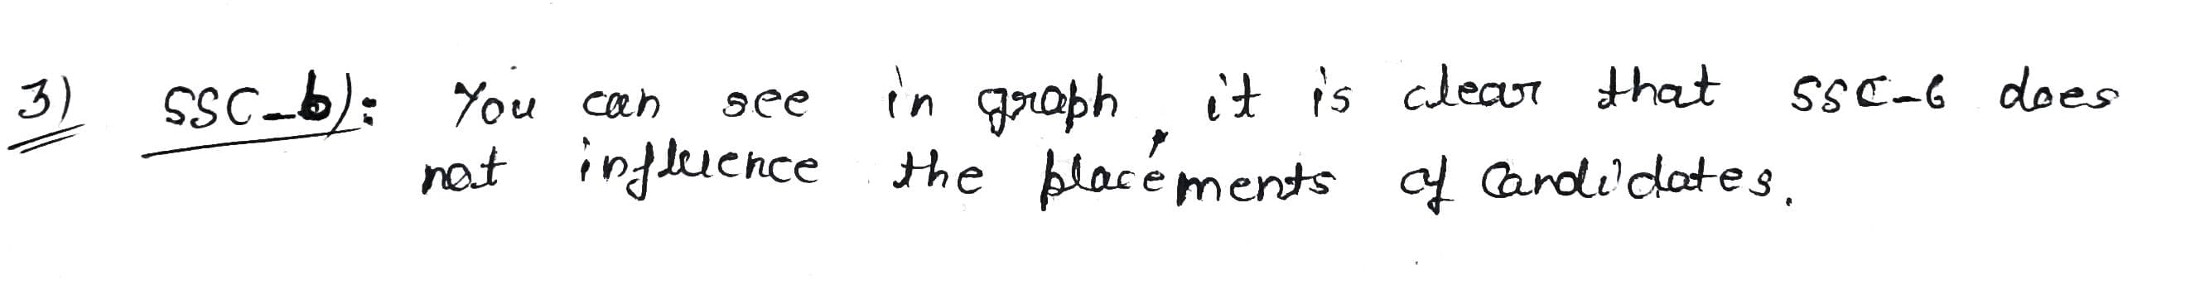 3) SSC_b): You can see in graph, it is clear that SSC-b does
not influence the placements of candidates.